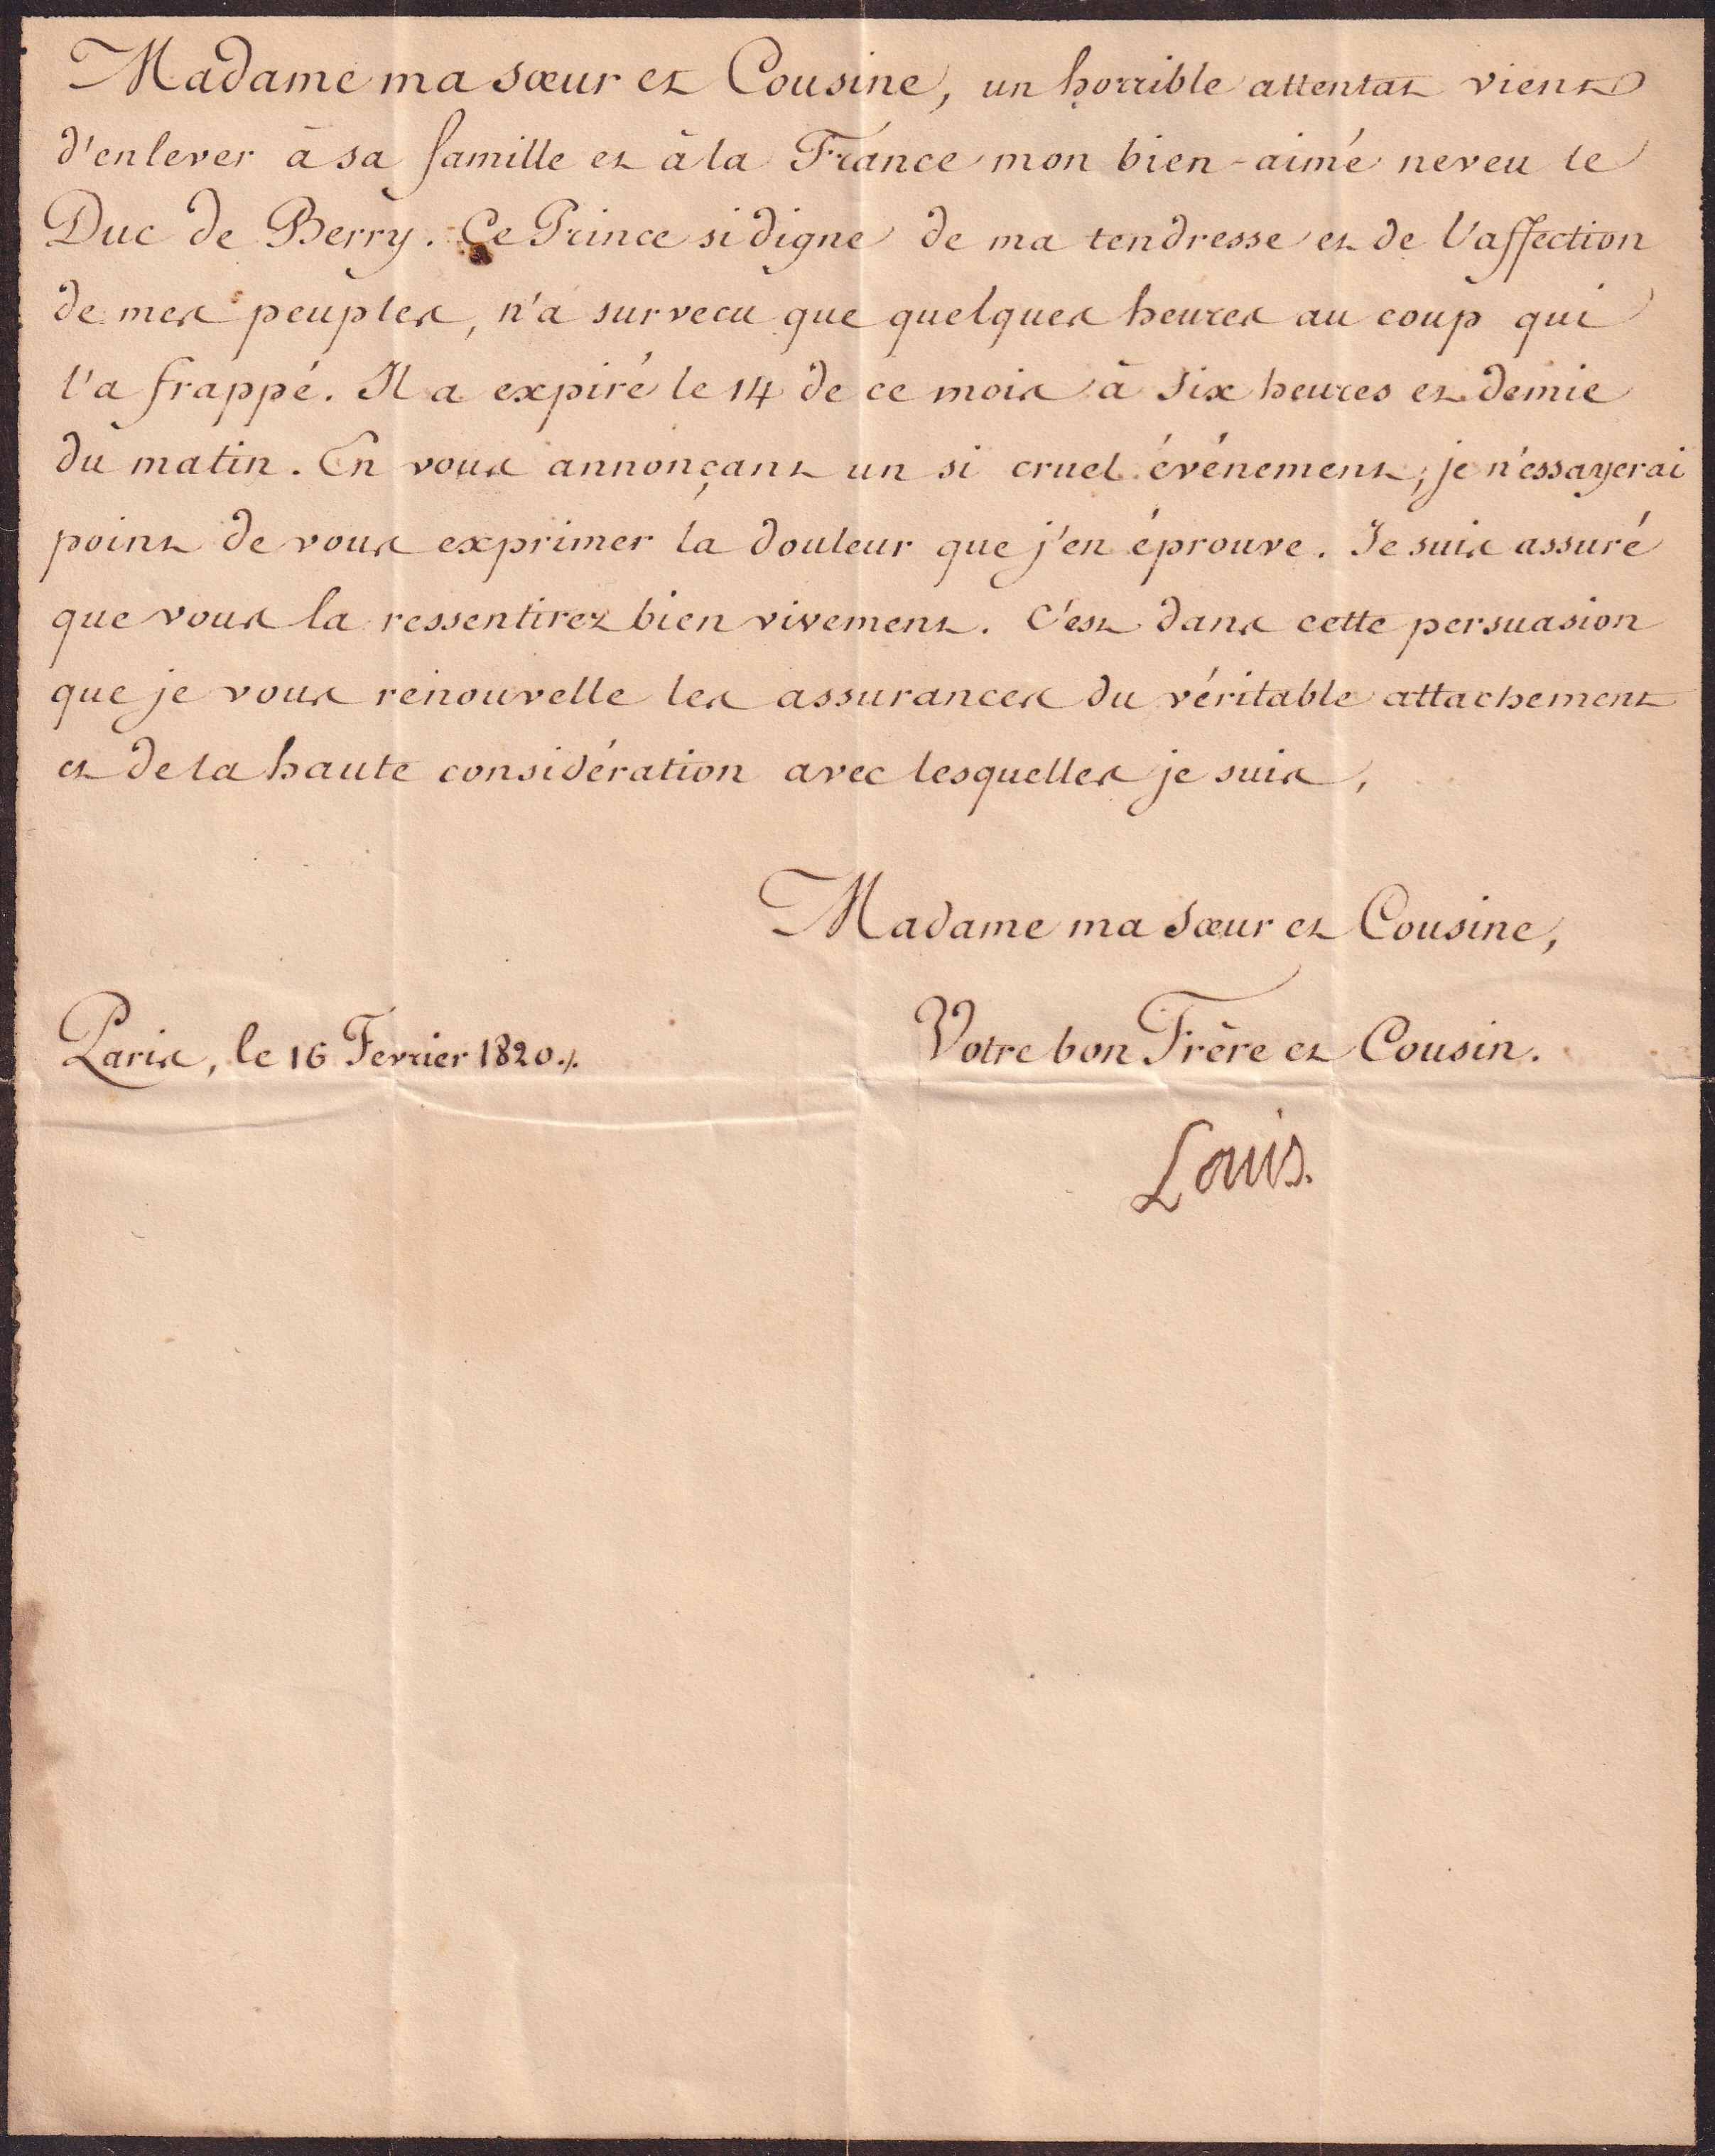 Madame ma sœur et Cousine, un horrible attentat vient
d'enlever à sa famille et à la France mon bien-aimé neveu le
Duc de Berry. Ce Prince si digne de ma tendresse et de l'affection
de mes peuples, n'a survecu que quelques heures au coup qui
l'a frappé. Il a expiré le 14 de ce mois à six heures et demie
du matin. En vous annonçant un si cruel événement, je n'essayerai
point de vous exprimer la douleur que j'en éprouve. Je suis assuré
que vous la ressentirez bien vivement. C'est dans cette persuasion
que je vous renouvelle les assurances du véritable attachement
et de la haute considération avec lesquelles je suis,
Madame ma sœur et Cousine,
Votre bon Frère et Cousin.
Paris, le 16 Février 1820./.
Louis.